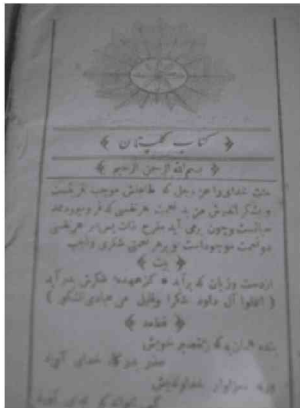 کتاب گلستان
بسم الله الرحمن الرحیم
منت خدای را عز وجل که طاعتش موجب قربتست
و بشکر اندرش مزید نعمت هر نفسی که فرو میرود ممد
حیاتست و چون بر می آید مفرح ذات پس در هر نفسی
دو نعمت موجود است و بر هر نعمتی شکری واجب
بیت
از دست و زبان که برآید * کز عهده شکرش بدر آید
( اعملوا آل داود شکرا وقلیل من عبادی الشکور )
قطعه
بنده همان به که ز تقصیر خویش
عذر بدرگاه خدای آورد
ورنه سزاوار خداوندیش
کس نتواند که بجای آورد